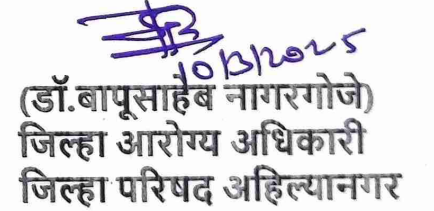 10/3/2025
(डॉ.बापूसाहेब नागरगोजे)
जिल्हा आरोग्य अधिकारी
जिल्हा परिषद अहिल्यानगर